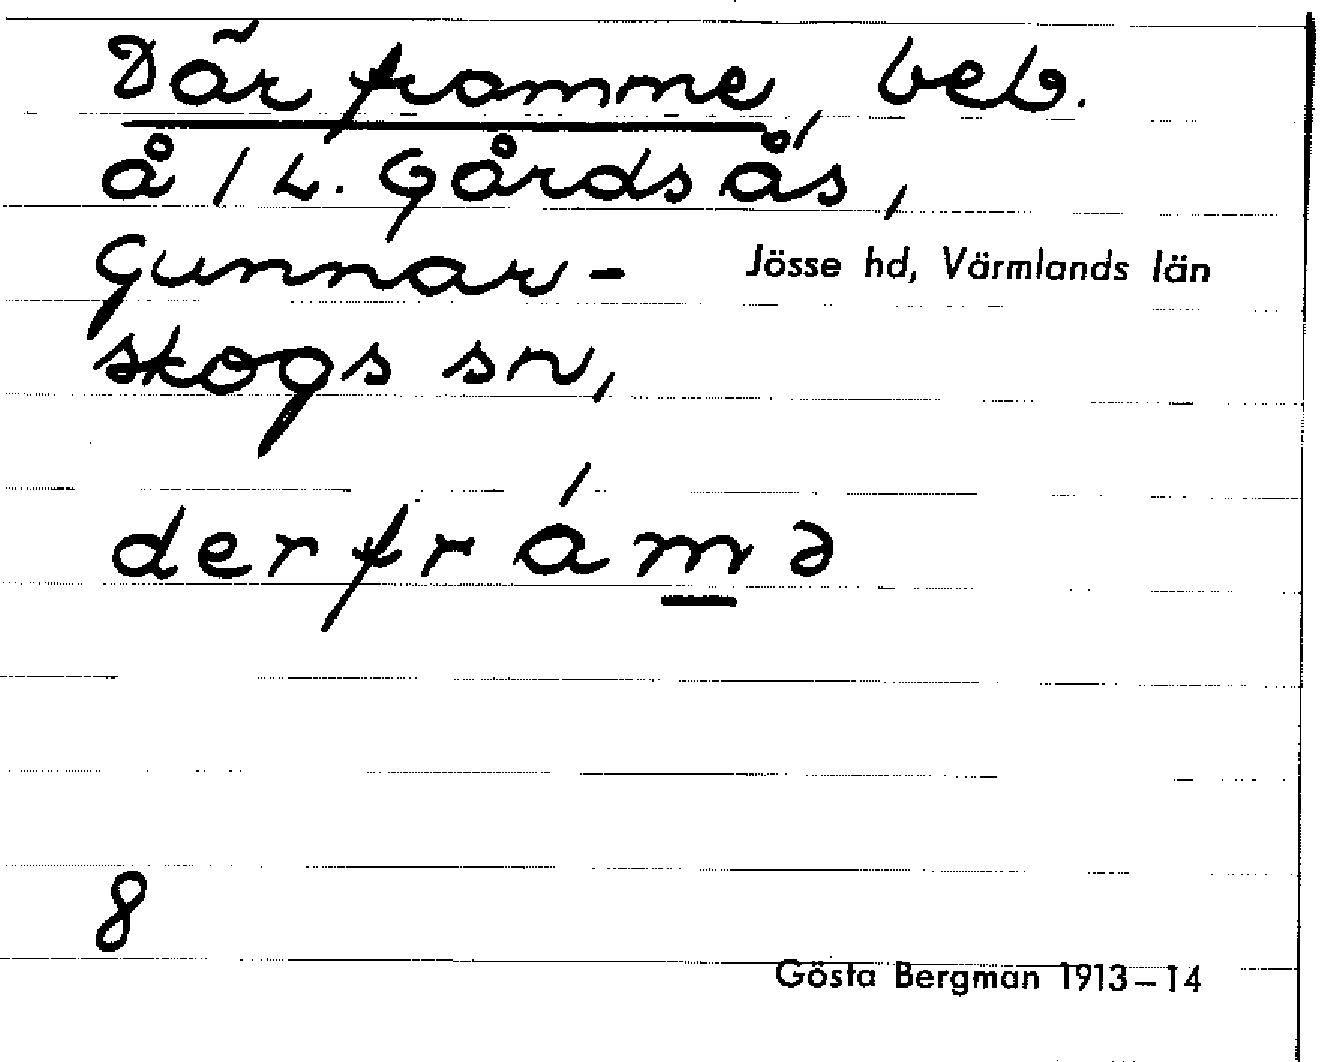 Där framme, beb.
å 1 L. Gårdsås,
Gunnar-
Jösse hd, Värmlands län
skogs sn,
derfrámə
8
Gösta Bergman 1913–14